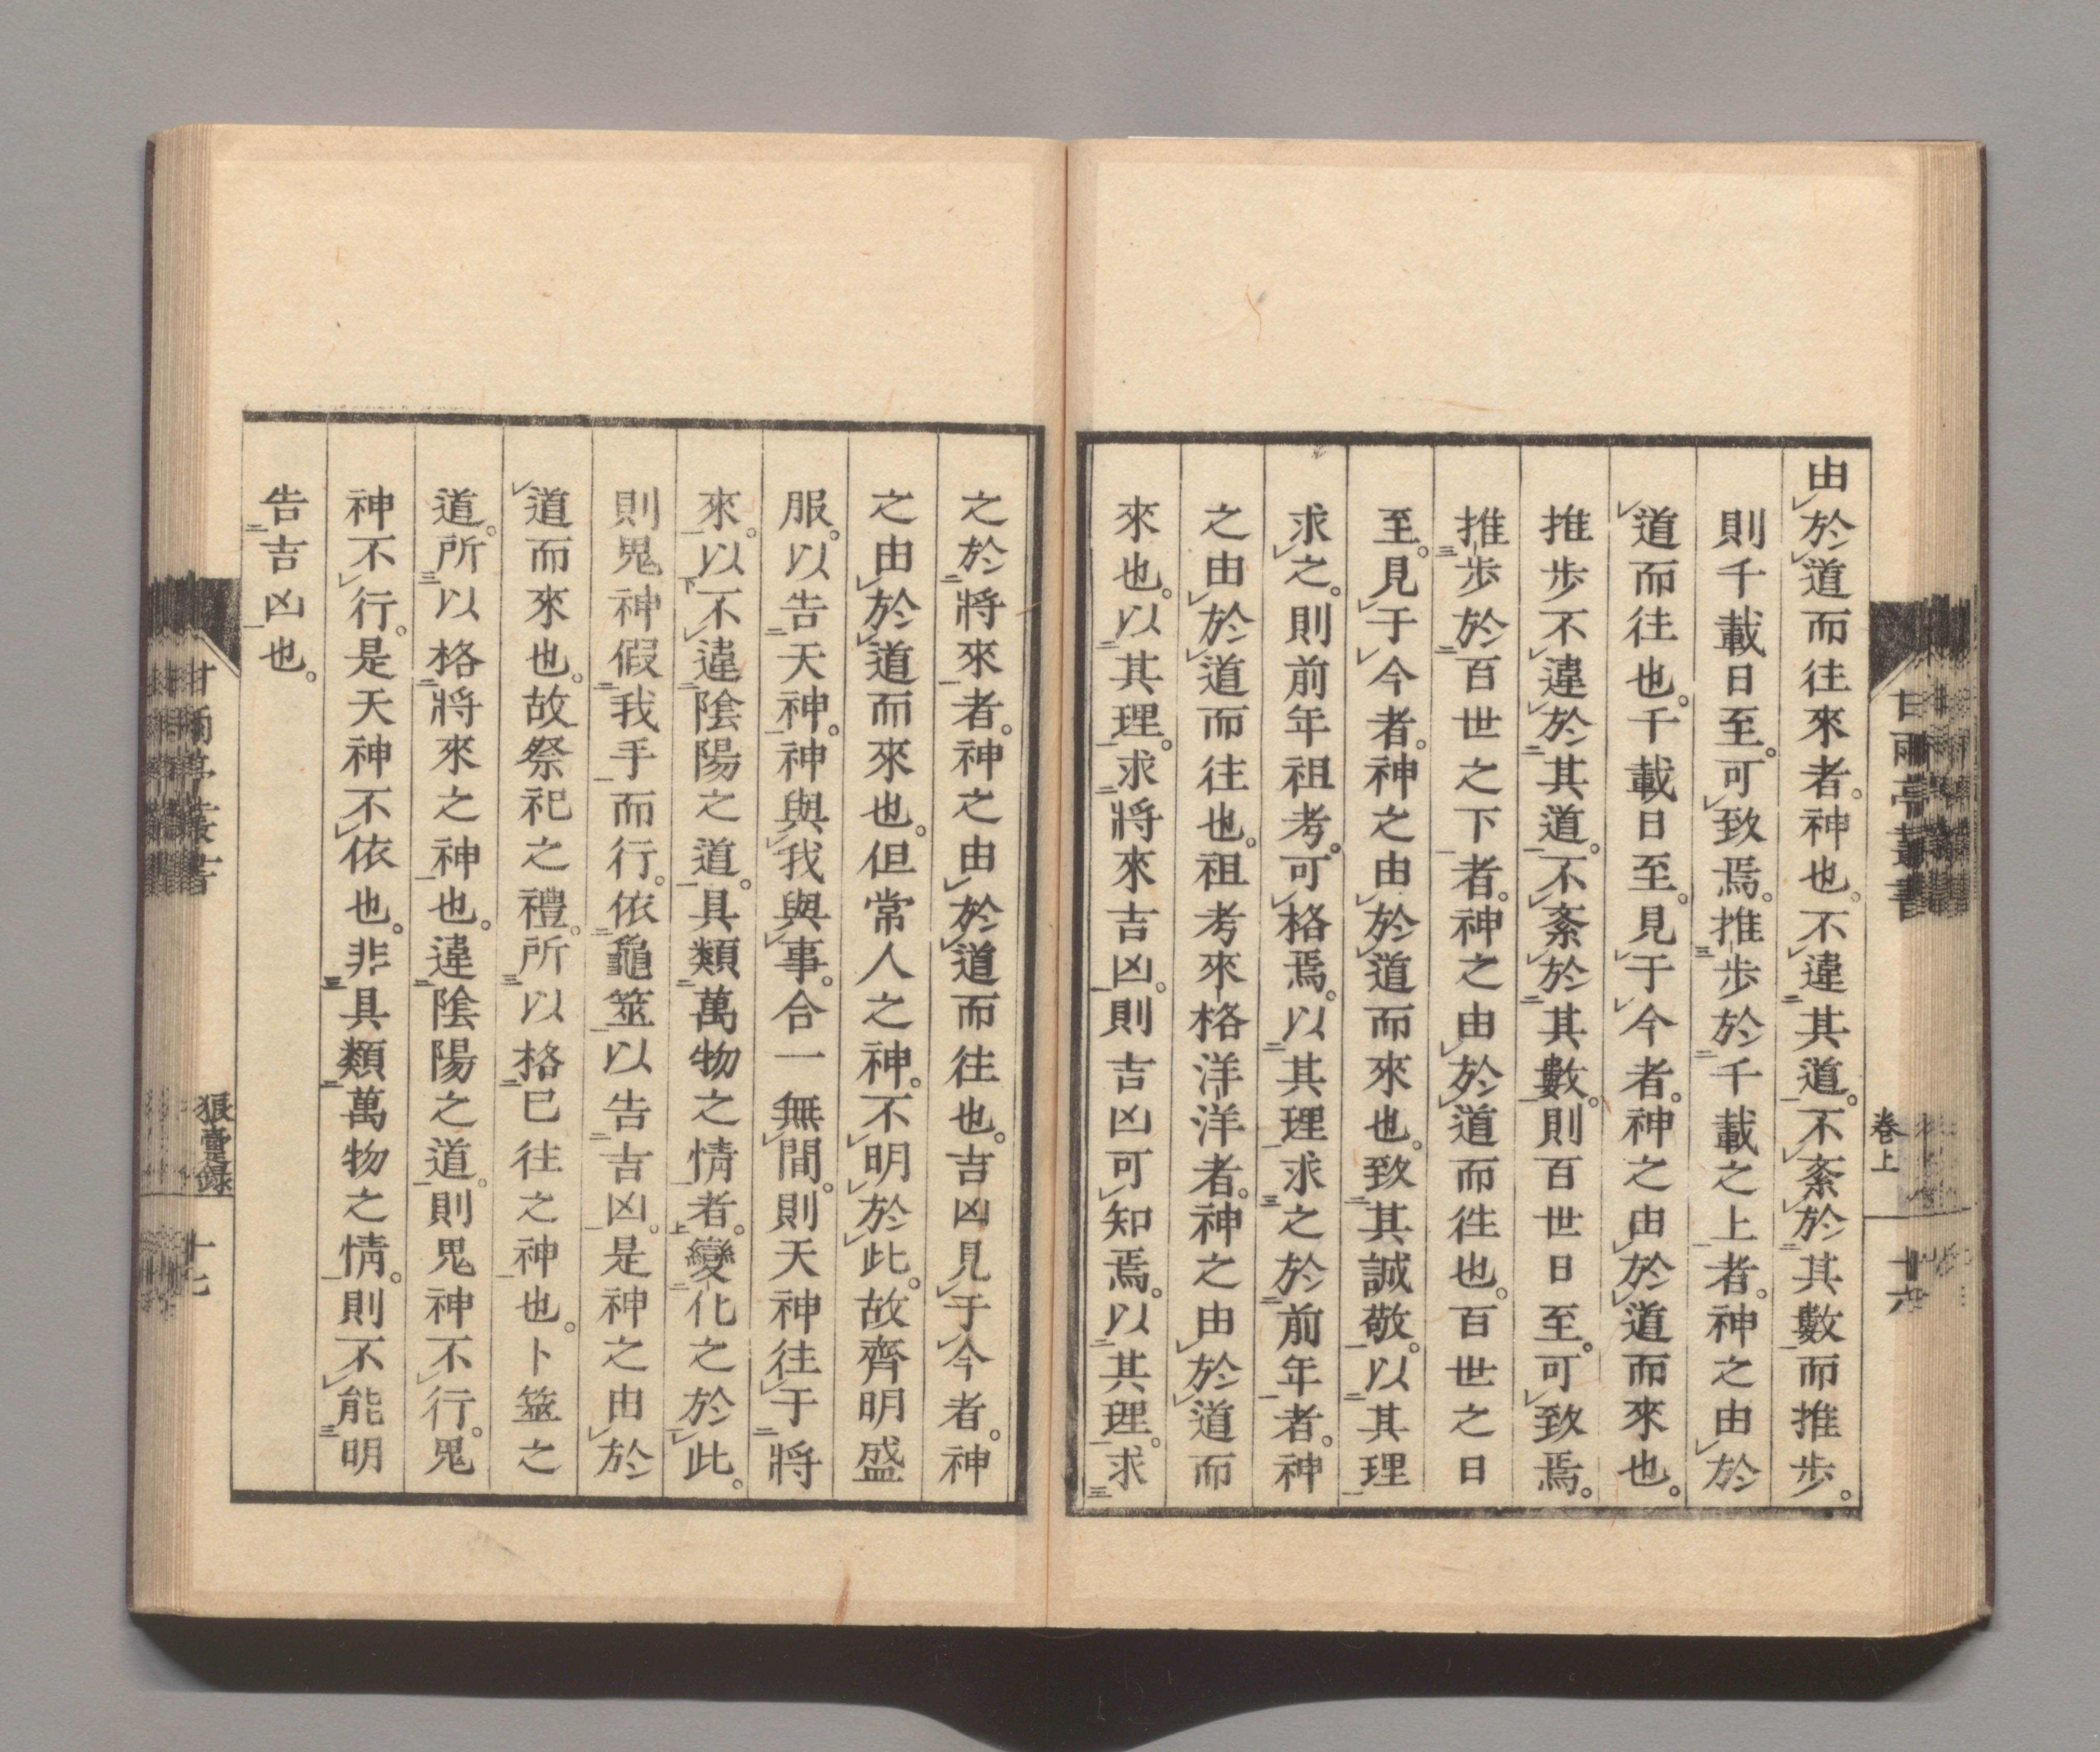 甘雨亭叢書
卷上
十六
由於道而往來者。神也。不違其道。不紊於其數而推步。
則千載日至。可致焉。推步於千載之上者。神之由於
道而往也。千載日至。見于今者。神之由於道而來也。
推步不違於其道。不紊於其數。則百世日至。可致焉。
推步於百世之下者。神之由於道而往也。百世之日
至。見于今者。神之由於道而來也。致其誠敬。以其理
求之。則前年祖考。可格焉。以其理求之於前年者。神
之由於道而往也。祖考來格洋洋者。神之由於道而
來也。以其理。求將來吉凶。則吉凶可知焉。以其理。求
之於將來者。神之由於道而往也。吉凶見于今者。神
之由於道而來也。但常人之神。不明於此。故齊明盛
服。以告天神。神與我與事。合一無間。則天神往于將
來。以不違陰陽之道。具類萬物之情者。變化之於此。
則鬼神假我手而行。依龜筮以告吉凶。是神之由於
道而來也。故祭祀之禮。所以格已往之神也。卜筮之
道。所以格將來之神也。違陰陽之道。則鬼神不行。鬼
神不行。是天神不依也。非具類萬物之情。則不能明
告吉凶也。
甘雨亭叢書
狼疐錄
十七